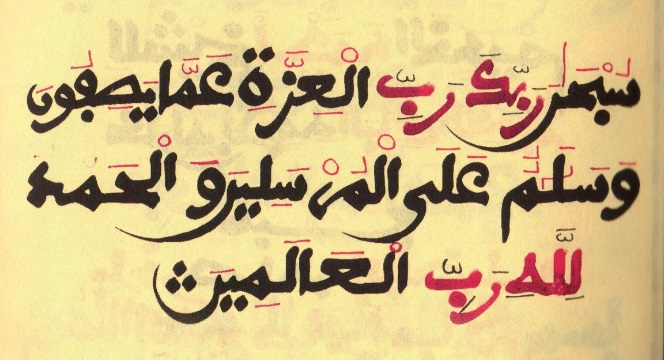 سُبْحَٰنَ رَبِّكَ رَبِّ الْعِزَّةِ عَمَّا يَصِفُونَ
وَسَلَٰمٌ عَلَى الْمُرْسَلِينَ وَالْحَمْدُ
لِلَّهِ رَبِّ الْعَالَمِينَ